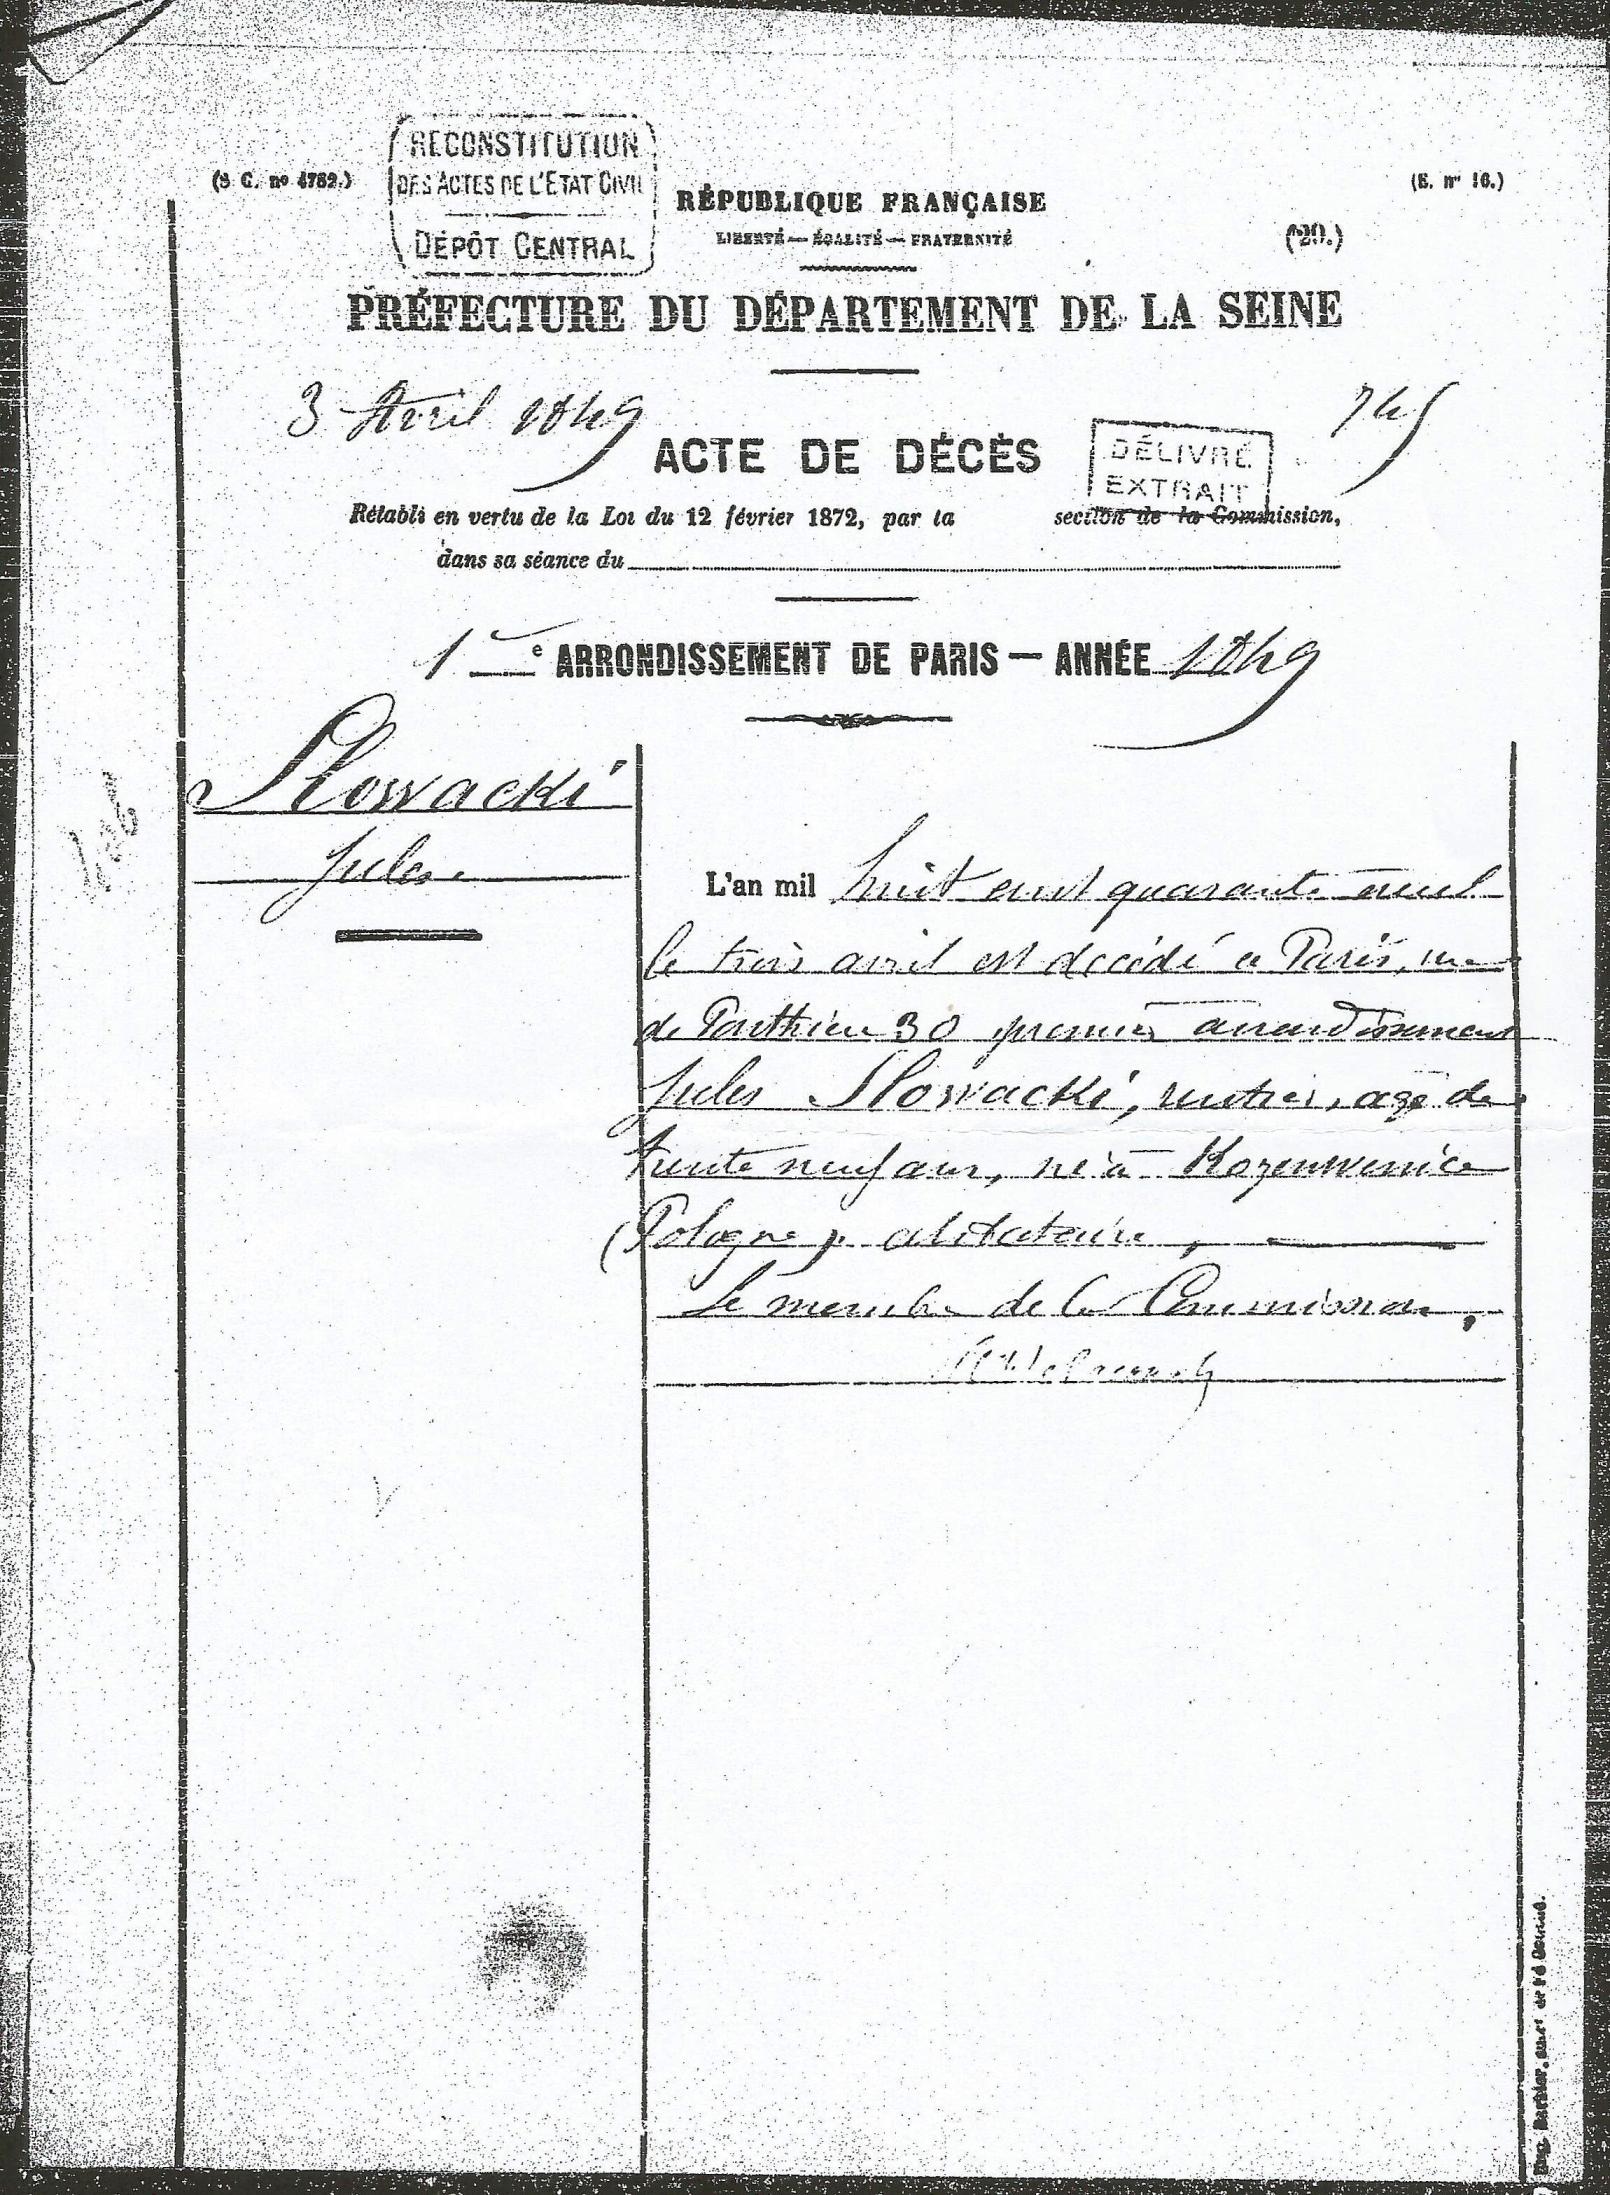 RECONSTITUTION
DES ACTES DE L'ETAT CIVIL
DÉPÔT CENTRAL
(S C. nº 4752.)
RÉPUBLIQUE FRANÇAISE
LIBERTÉ — ÉGALITÉ — FRATERNITÉ
(E. nº 16.)
(20.)
PRÉFECTURE DU DÉPARTEMENT DE LA SEINE
3 Avril 1849
745
ACTE DE DÉCÈS
DÉLIVRÉ
EXTRAIT
Rétabli en vertu de la Loi du 12 février 1872, par la section de la Commission,
dans sa séance du
1er e ARRONDISSEMENT DE PARIS — ANNÉE 1849
Slowacki
Jules.
L'an mil huit cent quarante neuf
le trois avril est décédé à Paris, rue
de Ponthieu 30 premier arrondissement
Jules Slowacki, rentier, agé de
trente neuf ans, né à Kozenwenice
(Pologne). célibataire,
Le membre de la Commission,